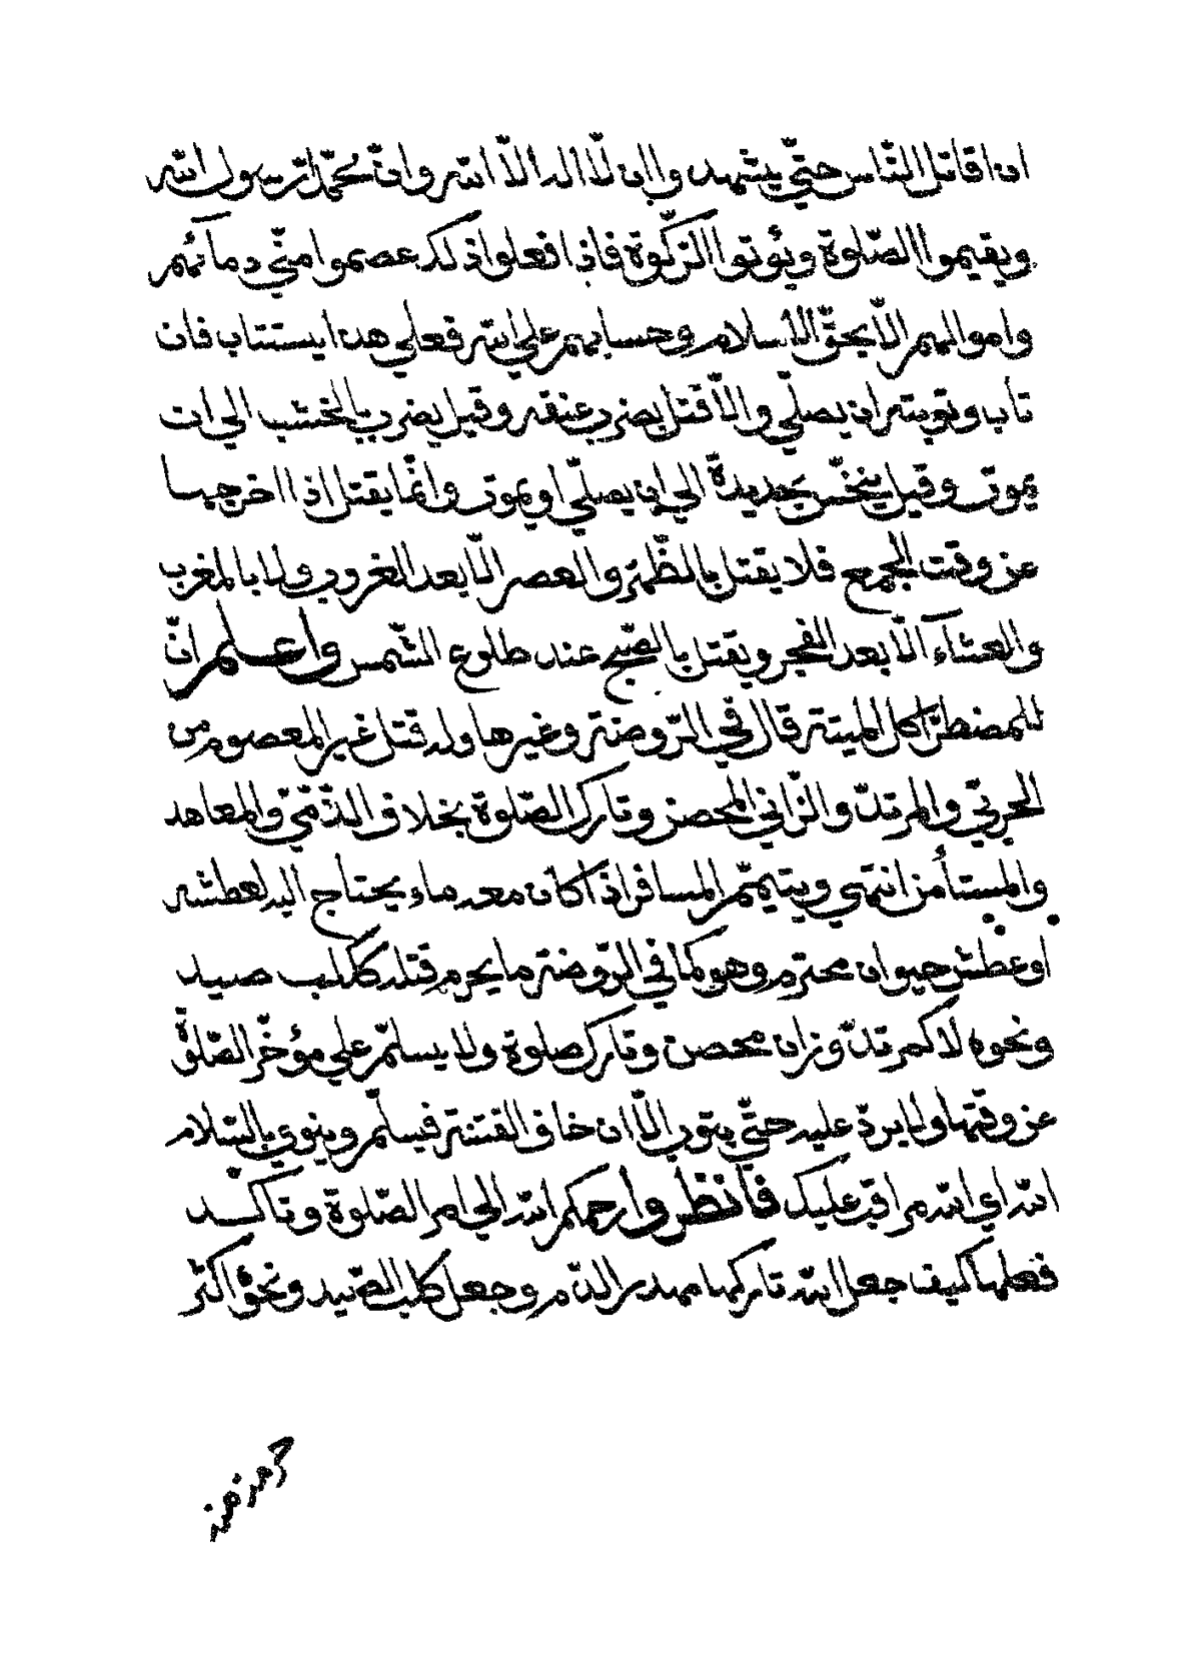 ان اقاتل النّاس حتّي يشهدوا ان لّا اله الّا الله وانّ محمّدا رسول الله
ويقيموا الصّلوة ويؤتوا الزّكوة فاذا فعلوا ذلك عصموا منّي دمائهم
واموالهم الّا بحقّ الاسلام وحسابهم علي الله فعلي هذا يستتاب فان
تاب وتوبته ان يصلّي والّا قتل بضرب عنقه وقيل يضرب بالخشب الي ان
يموت وقيل ينخس بحديدة الي ان يصلّي او يموت وانّما يقتل اذا اخرجها
عن وقت الجمع فلا يقتل بالظّهر والعصر الّا بعد الغروب ولا بالمغرب
والعشاء الّا بعد الفجر ويقتل بالصّبح عند طلوع الشّمس واعلم انّ
للمضطرّ اكل الميتة قال في الرّوضة وغيرها وله قتل غير المعصوم من
الحربّي والمرتدّ والزّاني المحصن وتارك الصّلوة بخلاف الذّمّيّ والمعاهد
والمستأمن انتهي ويتيمّم المسافر اذا كان معه ماء يحتاج اليه لعطشه
او عطش حيوان محترم وهو كما في الرّوضة ما يحرم قتله ككلب صيد
ونحوه لا كمرتدّ وزان محصن وتارك صلوة ولا يسلّم علي مؤخّر الصّلوة
عن وقتها ولا يردّ عليه حتّي يتوب الّا ان خاف الفتنة فيسلّم وينوي بالسّلام
الله اي الله مراقب عليك فانظروا رحمكم الله الي امر الصّلوة وتاكد
فعلها كيف جعل الله تاركها مهدر الدّم وجعل كلب الصّيد ونحوه اكثر